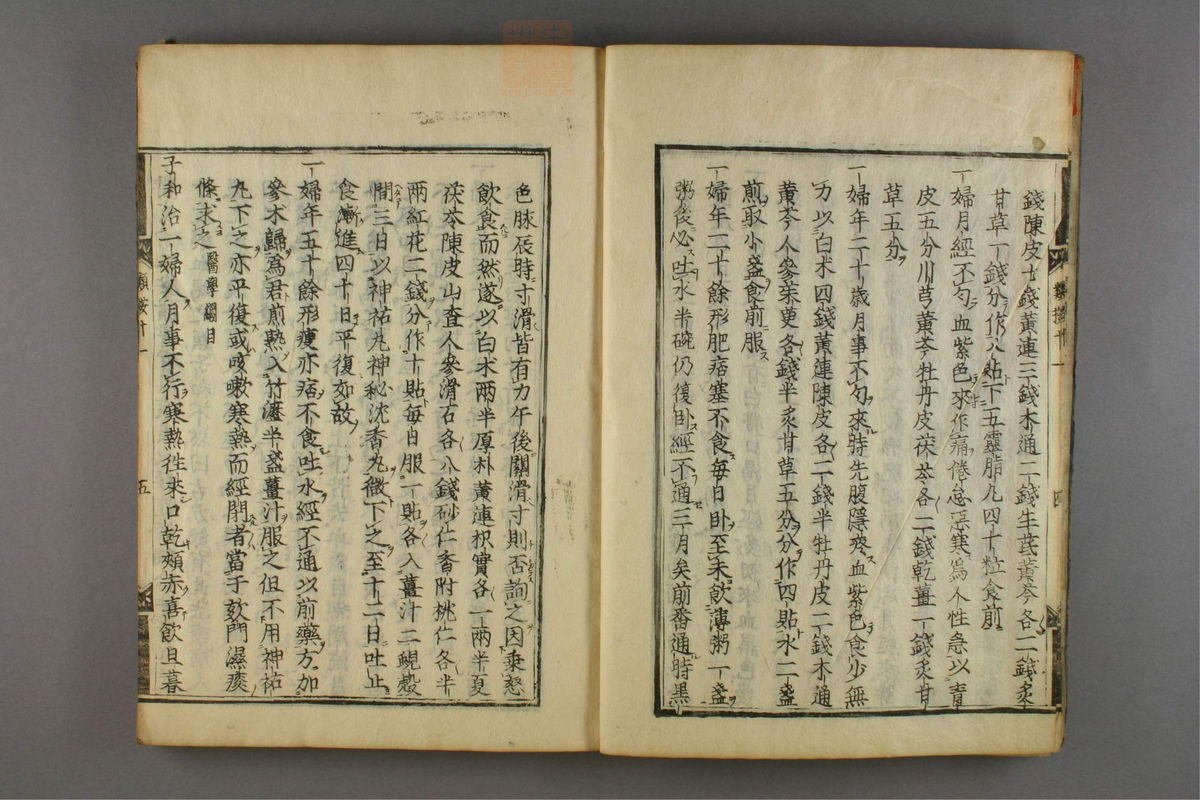 錢陳皮七錢黃連三錢木通二錢生芪黃芩各二錢炙
甘草一錢分作八貼下五靈脂丸四十粒食前
一婦月經不勻血紫色來作痛倦怠惡寒爲人性急以青
皮五分川芎黃芩牡丹皮茯苓各二錢乾薑一錢炙甘
草五分
一婦年二十歲月事不勻來時先腹隱疼血紫色食少無
力以白术四錢黃連陳皮各二錢半牡丹皮二錢木通
黃芩人參茱萸各錢半炙甘草五分分作四貼水二盞
煎取小盞食前服
一婦年二十餘形肥痞塞不食每日卧至未飲薄粥一盞
粥後必吐水半碗仍復卧經不通三月矣前番通時黑
類按十一
四
色脉辰時寸滑皆有力午後關滑寸則否詢之因乘怒
飲食而然遂以白术兩半厚朴黃連枳實各一兩半夏
茯苓陳皮山査人參滑石各八錢砂仁香附桃仁各半
兩紅花二錢分作十貼每日服一貼各入薑汁二蜆殼
間三日以神祐丸神秘沈香丸微下之至十二日吐止
食漸進四十日平復如故
一婦年五十餘形瘦亦痞不食吐水經不通以前藥方加
參术歸爲君煎熟入竹瀝半盞薑汁服之但不用神祐
丸下之亦平復或咳嗽寒熱而經閉者當于欬門濕痰
條求之醫學綱目
子和治一婦人月事不行寒熱徃来口乾頰赤喜飲旦暮
類按十一
五